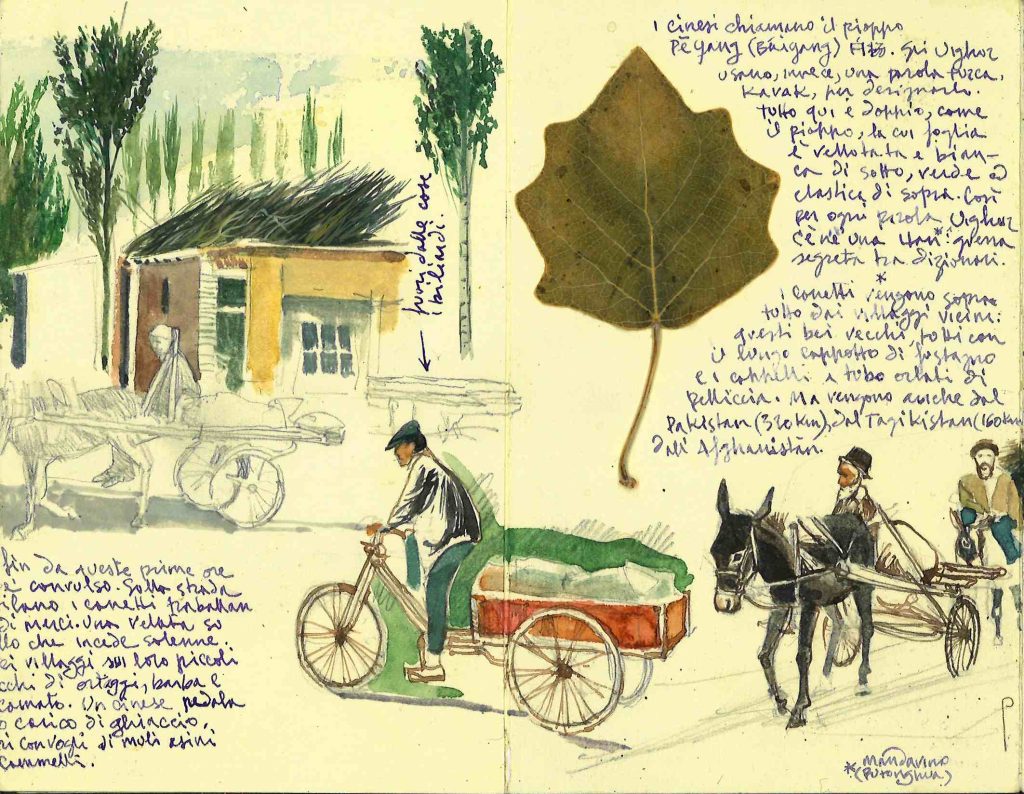 fin da queste prime ore
è convulso. Sulla strada
filano i carretti trabahan
di merci. Una velata so
llo che incede solenne.
ei villaggi sui loro piccoli
cchi di ortaggi, barba e
camato. Un cinese pedala
o carico di ghiaccio,
ri convogli di muli asini
cammelli.
← fuori dalle case
i biliardi.
I cinesi chiamano il pioppo
Pē Yang (Báiyang) 白杨. Gli Uighur
usano, invece, una parola turca,
Kavak, per designarlo.
Tutto qui è doppio, come
il pioppo, la cui foglia
è vellutata e bian-
ca di sotto, verde ed
elastica di sopra. Così
per ogni parola Uighur
c'è n'è una Han*: guerra
segreta tra dizionari.
*
I carretti vengono sopra
tutto dai villaggi vicini:
questi bei vecchi, tutti con
il lungo cappotto di fustagno
e i cappelli a tubo orlati di
pelliccia. Ma vengono anche dal
Pakistan (320km), dal Tagikistan (160km
dall'Afghanistān.
* Mandarino
(Putonghua)
P